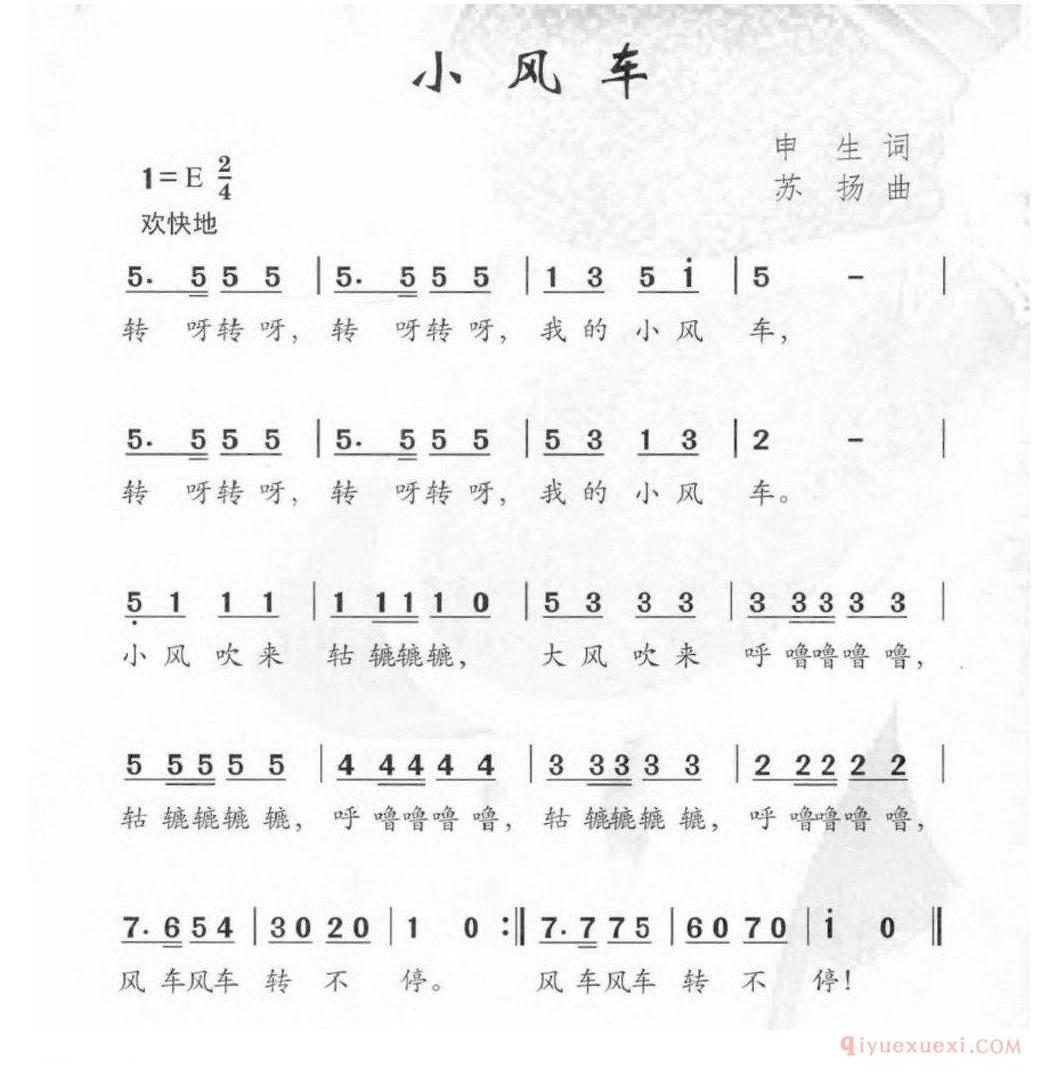 小风车
申 生 词
1=E 2/4
苏 扬 曲
欢快地
5. 5 5 5 | 5. 5 5 5 | 1 3 5 i | 5 - |
转 呀转 呀, 转 呀转 呀, 我 的 小 风 车,
5. 5 5 5 | 5. 5 5 5 | 5 3 1 3 | 2 - |
转 呀转 呀, 转 呀转 呀, 我 的 小 风 车。
5 1 1 1 | 1 1 1 1 0 | 5 3 3 3 | 3 3 3 3 3 |
小 风 吹 来 轱 辘辘辘, 大 风 吹 来 呼 噜噜噜 噜,
5 5 5 5 5 | 4 4 4 4 4 | 3 3 3 3 3 | 2 2 2 2 2 |
轱 辘辘辘 辘, 呼 噜噜噜 噜, 轱 辘辘辘 辘, 呼 噜噜噜 噜,
7. 6 5 4 | 3 0 2 0 | 1 0 :|| 7. 7 7 5 | 6 0 7 0 | i 0 ||
风 车风车 转 不 停。 风 车风车 转 不 停!
qiyuexuexi.COM